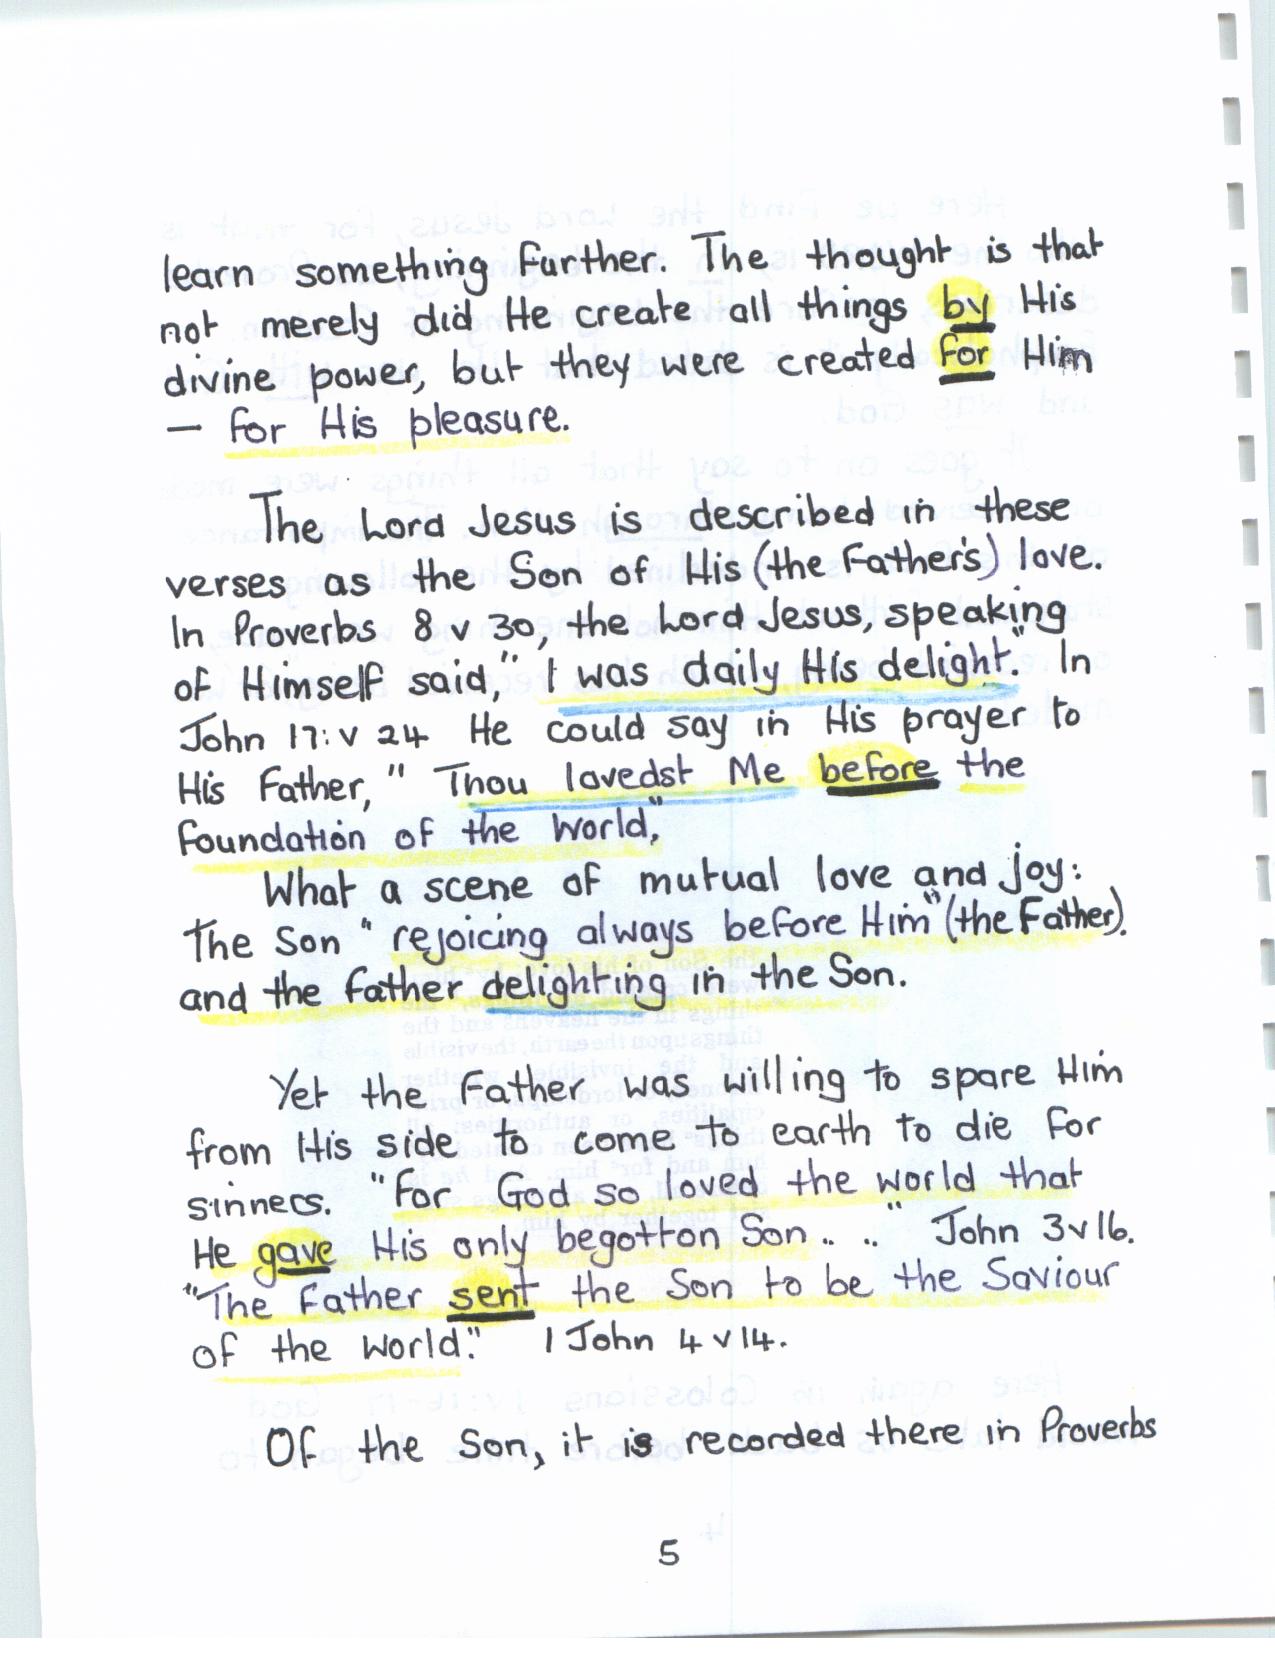 learn something further. The thought is that
not merely did He create all things by His
divine power, but they were created for Him
— for His pleasure.
The Lord Jesus is described in these
verses as the Son of His (the Father's) love.
In Proverbs 8 v 30, the Lord Jesus, speaking
of Himself said, " I was daily His delight". In
John 17: v 24 He could say in His prayer to
His Father, " Thou lovedst Me before the
foundation of the World,"
What a scene of mutual love and joy:
The Son " rejoicing always before Him" (the Father).
and the Father delighting in the Son.
Yet the Father was willing to spare Him
from His side to come to earth to die for
sinners. "For God so loved the world that
He gave His only begotton Son .. .. " John 3 v 16.
"The Father sent the Son to be the Saviour
of the World." 1 John 4 v 14.
Of the Son, it is recorded there in Proverbs
5